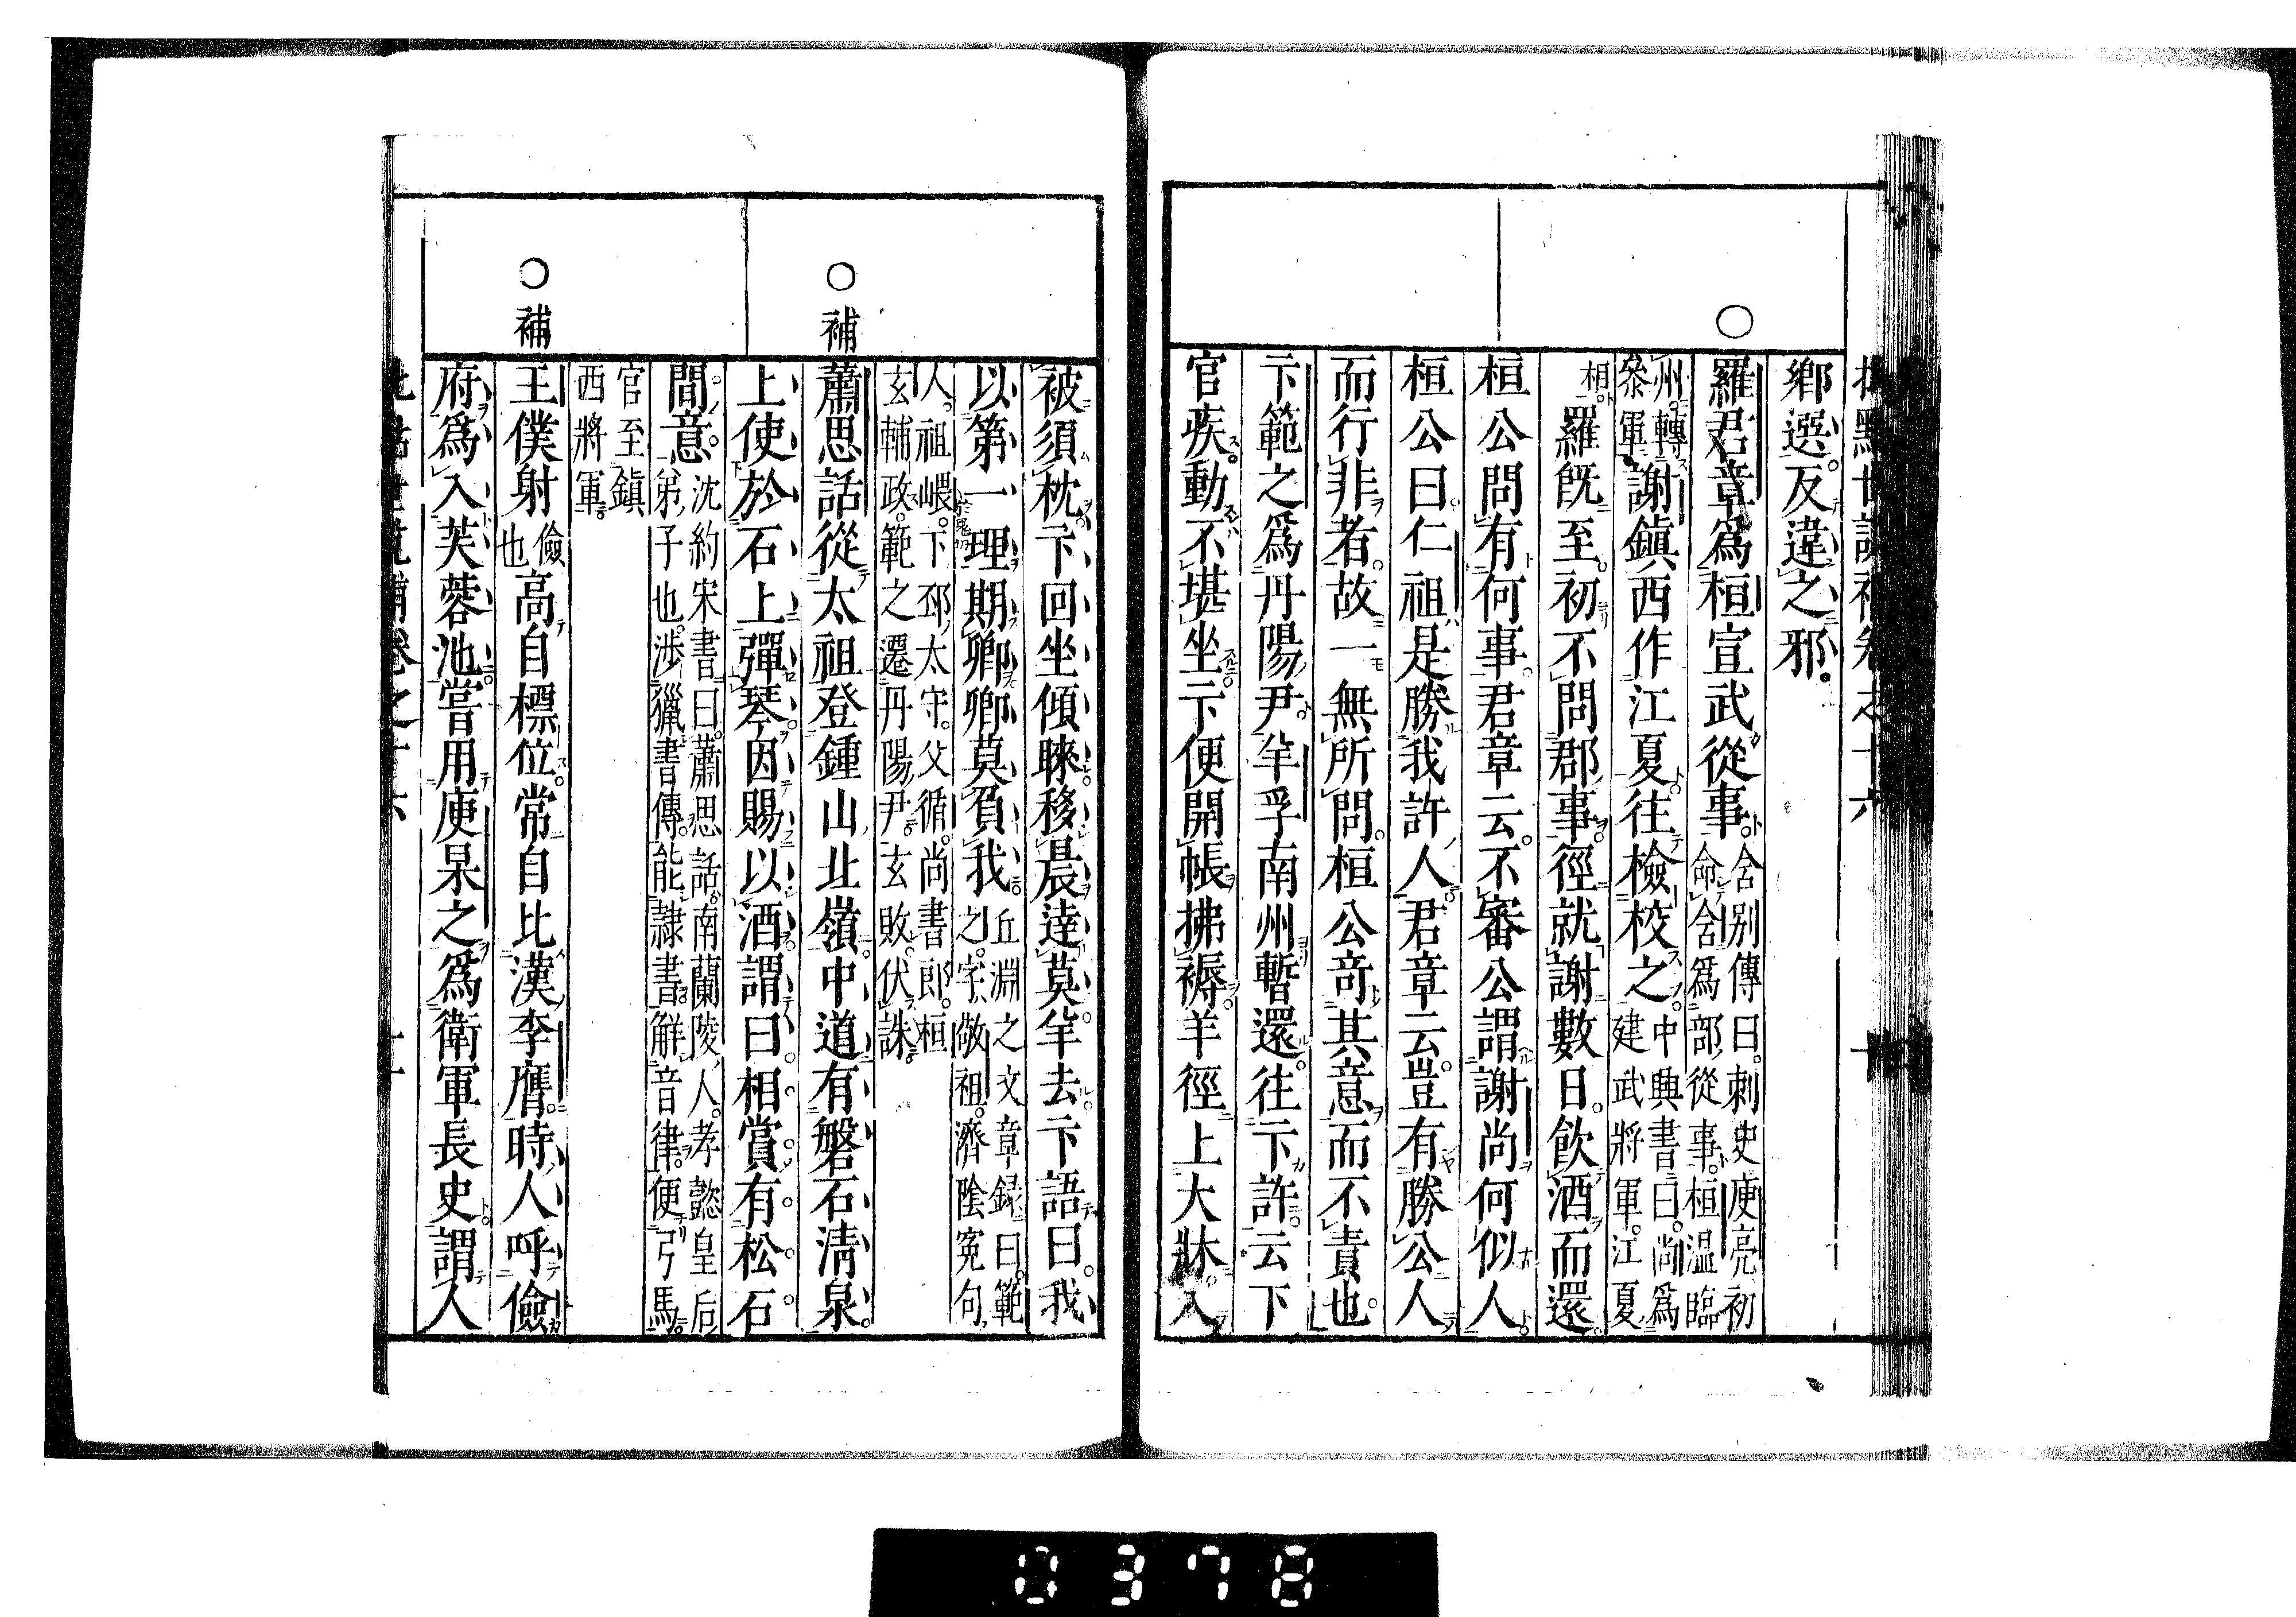 鄉選反違之邪
○
羅君章爲桓宣武從事含別傳曰刺史庾亮初命含爲部從事桓溫臨
州轉參軍謝鎮西作江夏往檢校之中興書曰尚爲建武將軍江夏
相羅既至初不問郡事徑就謝數日飲酒而還
桓公問有何事君章云不審公謂謝尚何似人
桓公曰仁祖是勝我許人君章云豈有勝公人
而行非者故一無所問桓公奇其意而不責也
卞範之爲丹陽尹羊孚南州暫還往卞許云下
官疾動不堪坐卞便開帳拂褥羊徑上大牀入
被須枕卞回坐傾睞移晨達莫羊去卞語曰我
以第一理期卿卿莫負我丘淵之文章錄曰範之字敬祖濟陰寃句
人祖嵔下邳太守父循尚書郎桓玄輔政範之遷丹陽尹玄敗伏誅
○補
蕭思話從太祖登鍾山北嶺中道有磐石清泉
上使於石上彈琴因賜以酒謂曰相賞有松石
間意沈約宋書曰蕭思話南蘭陵人孝懿皇后弟子也涉獵書傳能隸書解音律便弓馬
官至鎮西將軍
○補
王僕射儉也高自標位常自比漢李膺時人呼儉
府爲入芙蓉池嘗用庾杲之爲衛軍長史謂人
0378